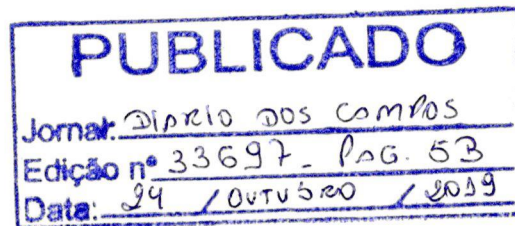 PUBLICADO
Jornal: DIARIO DOS CAMPOS
Edição nº 33697- PAG. 5B
Data: 24 / OUTUBRO / 2019